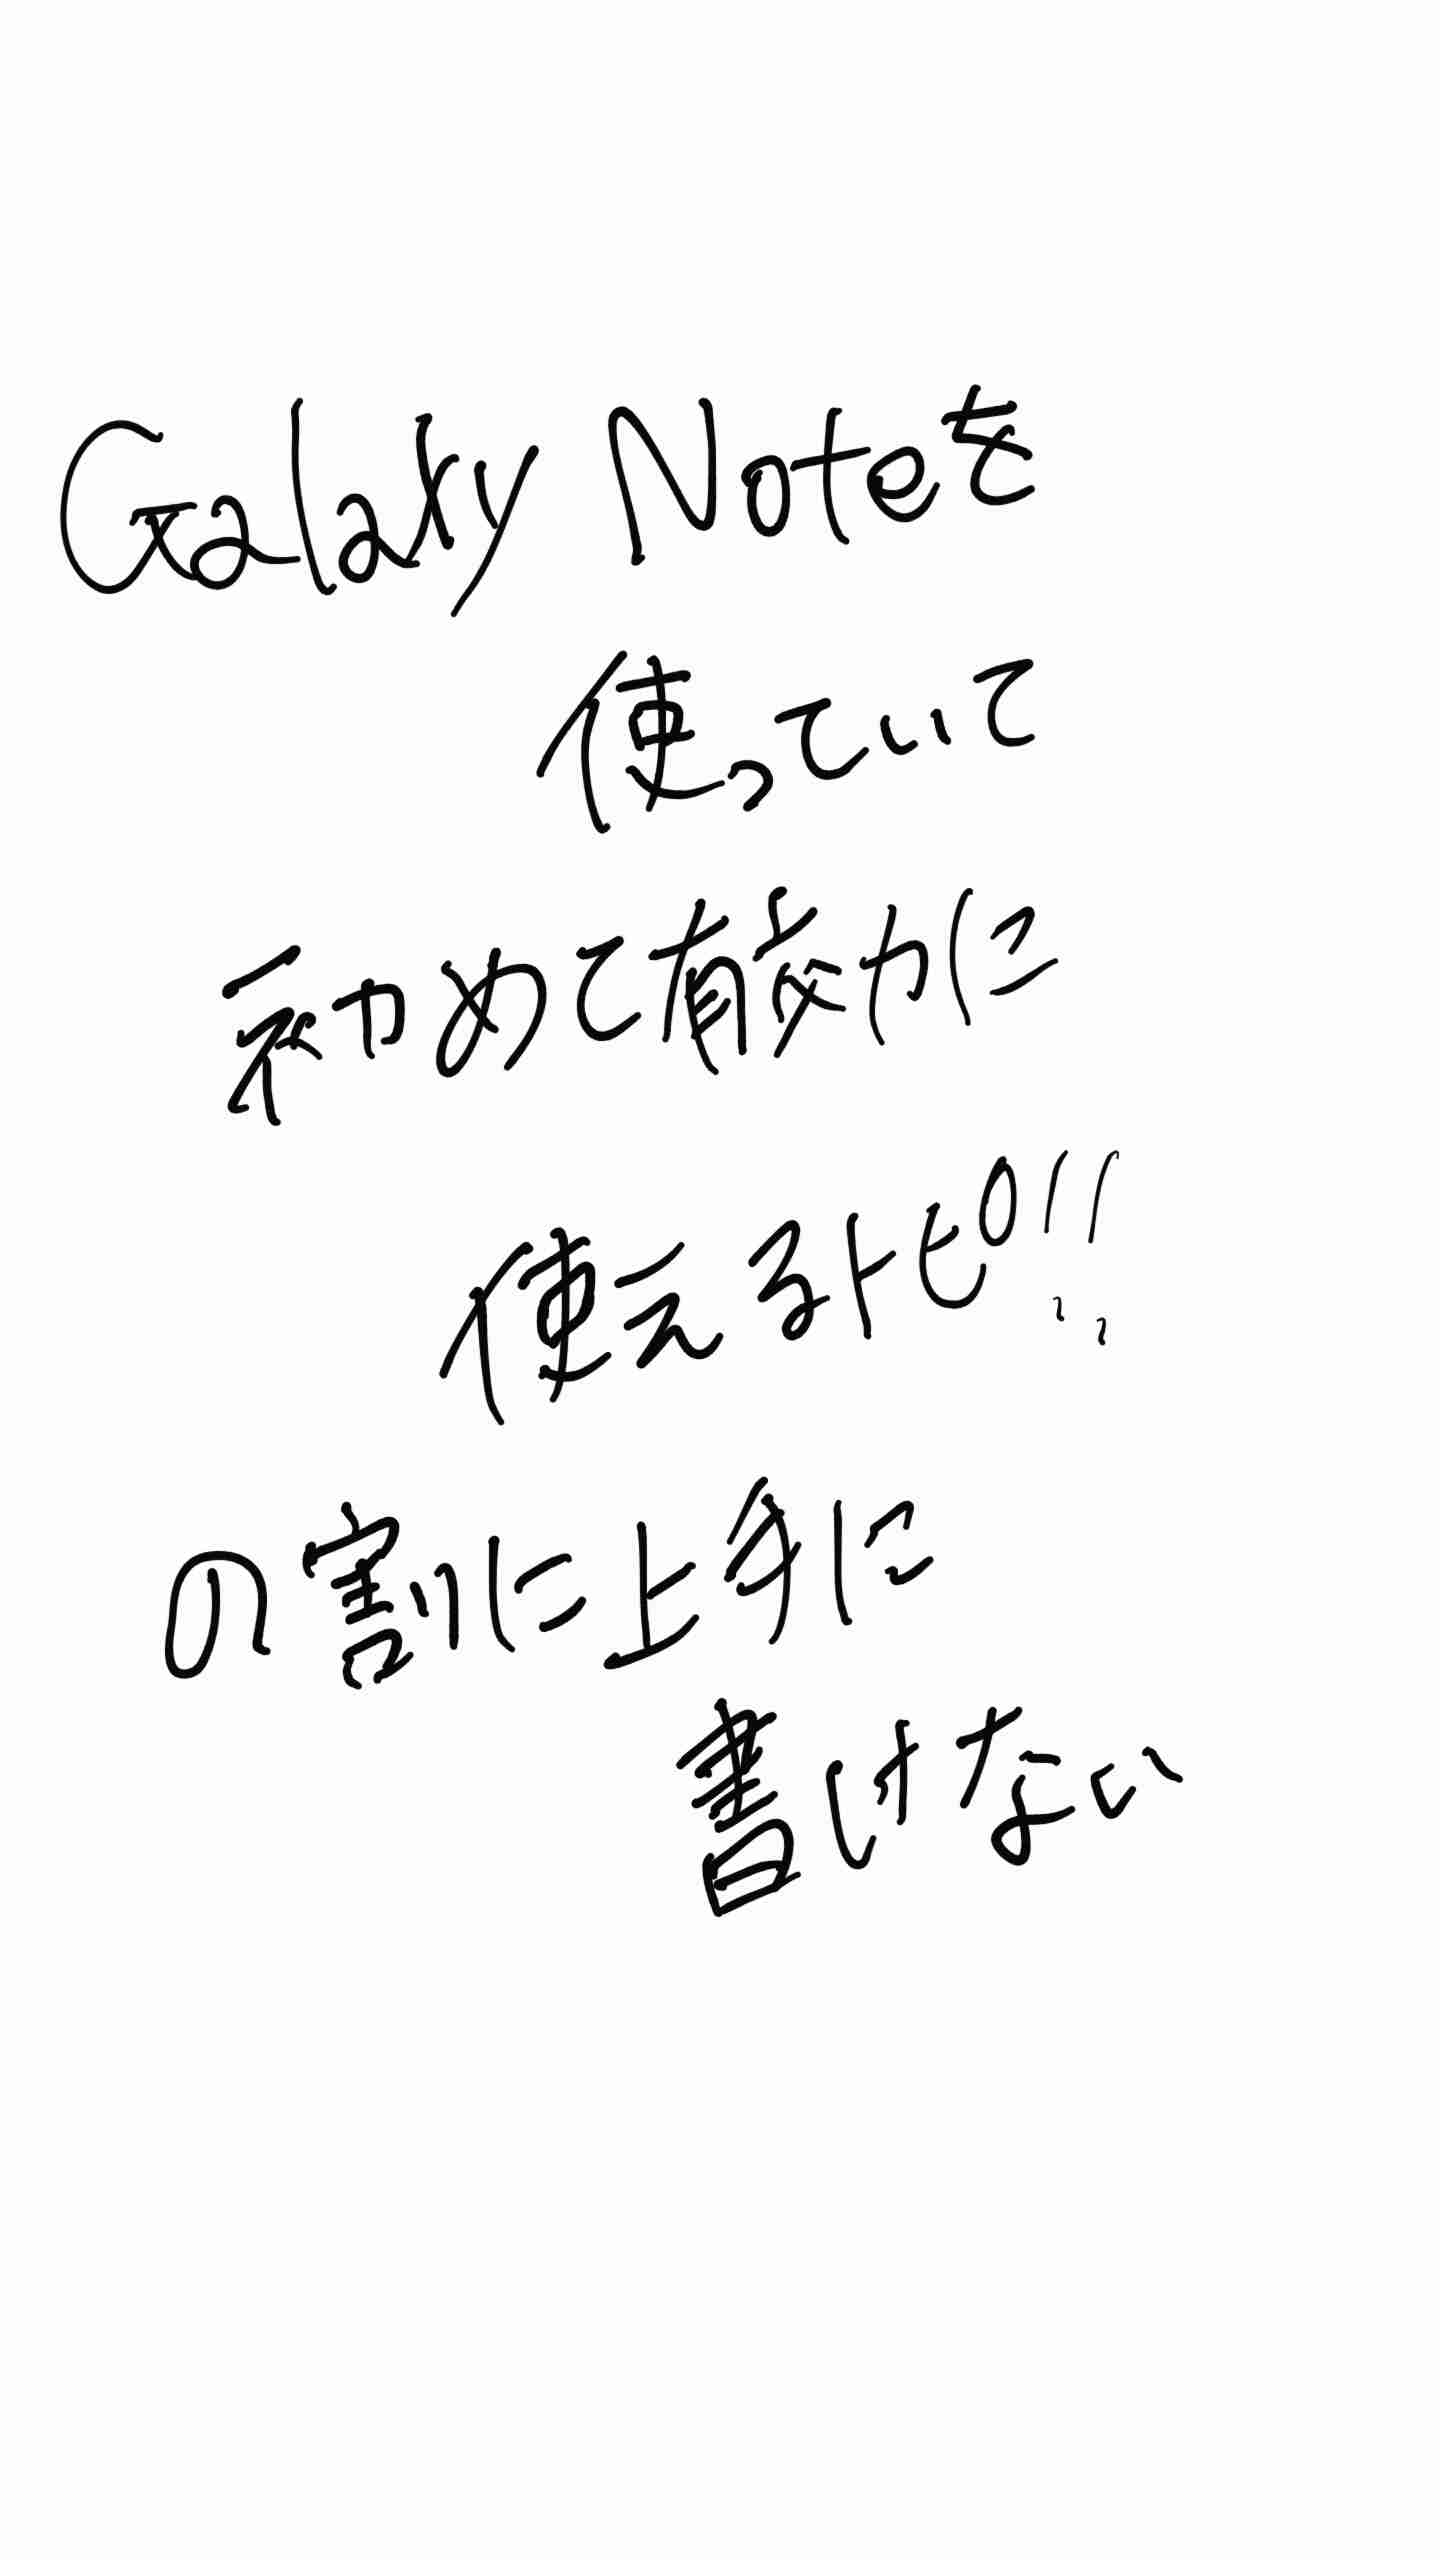 Galaxy Noteを
使っていて
初めて有効に
使えるトピ!!
の割に上手に
書けない